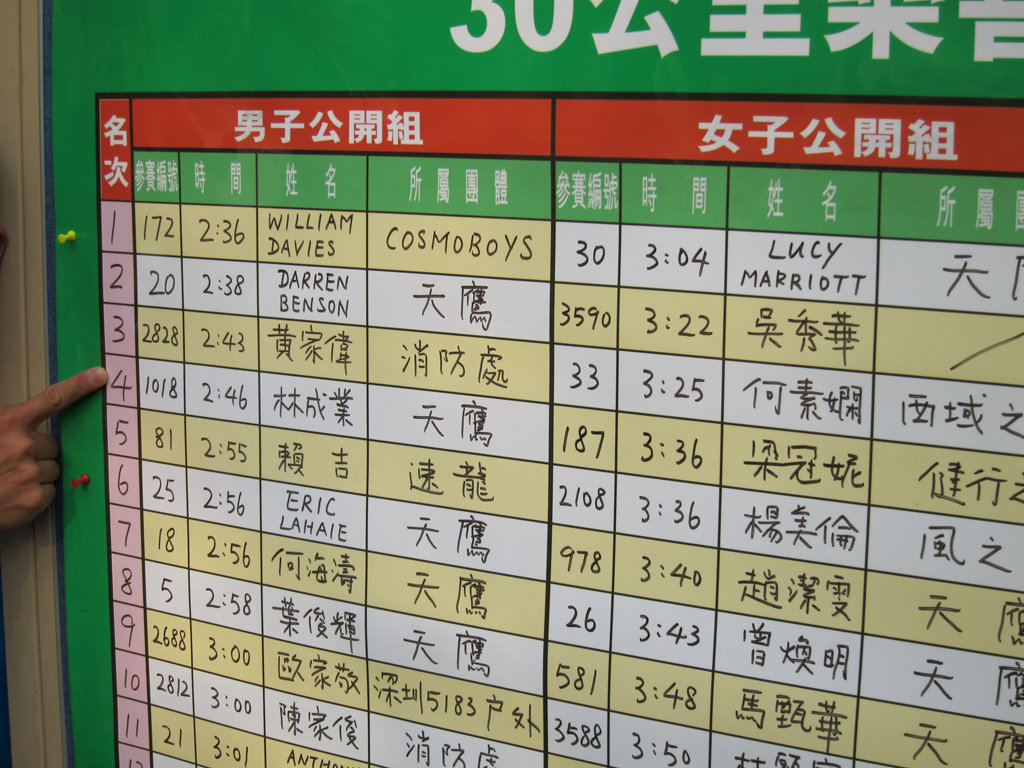 30公里樂
名次 男子公開組 女子公開組
參賽編號 時間 姓名 所屬團體 參賽編號 時間 姓名 所屬團
1 172 2:36 WILLIAM DAVIES COSMOBOYS 30 3:04 LUCY MARRIOTT 天
2 20 2:38 DARREN BENSON 天鷹 3590 3:22 吳秀華
3 2828 2:43 黃家偉 消防處 33 3:25 何素嫻 西域之
4 1018 2:46 林成業 天鷹 187 3:36 梁冠妮 健行之
5 81 2:55 賴吉 速龍 2108 3:36 楊美倫 風之
6 25 2:56 ERIC LAHAIE 天鷹 978 3:40 趙潔雯 天鷹
7 18 2:56 何海濤 天鷹 26 3:43 曾煥明 天鷹
8 5 2:58 葉俊輝 天鷹 581 3:48 馬甄華 天鷹
9 2688 3:00 歐家敬 深圳5183户外 3588 3:50
10 2812 3:00 陳家俊 消防處
11 21 3:01